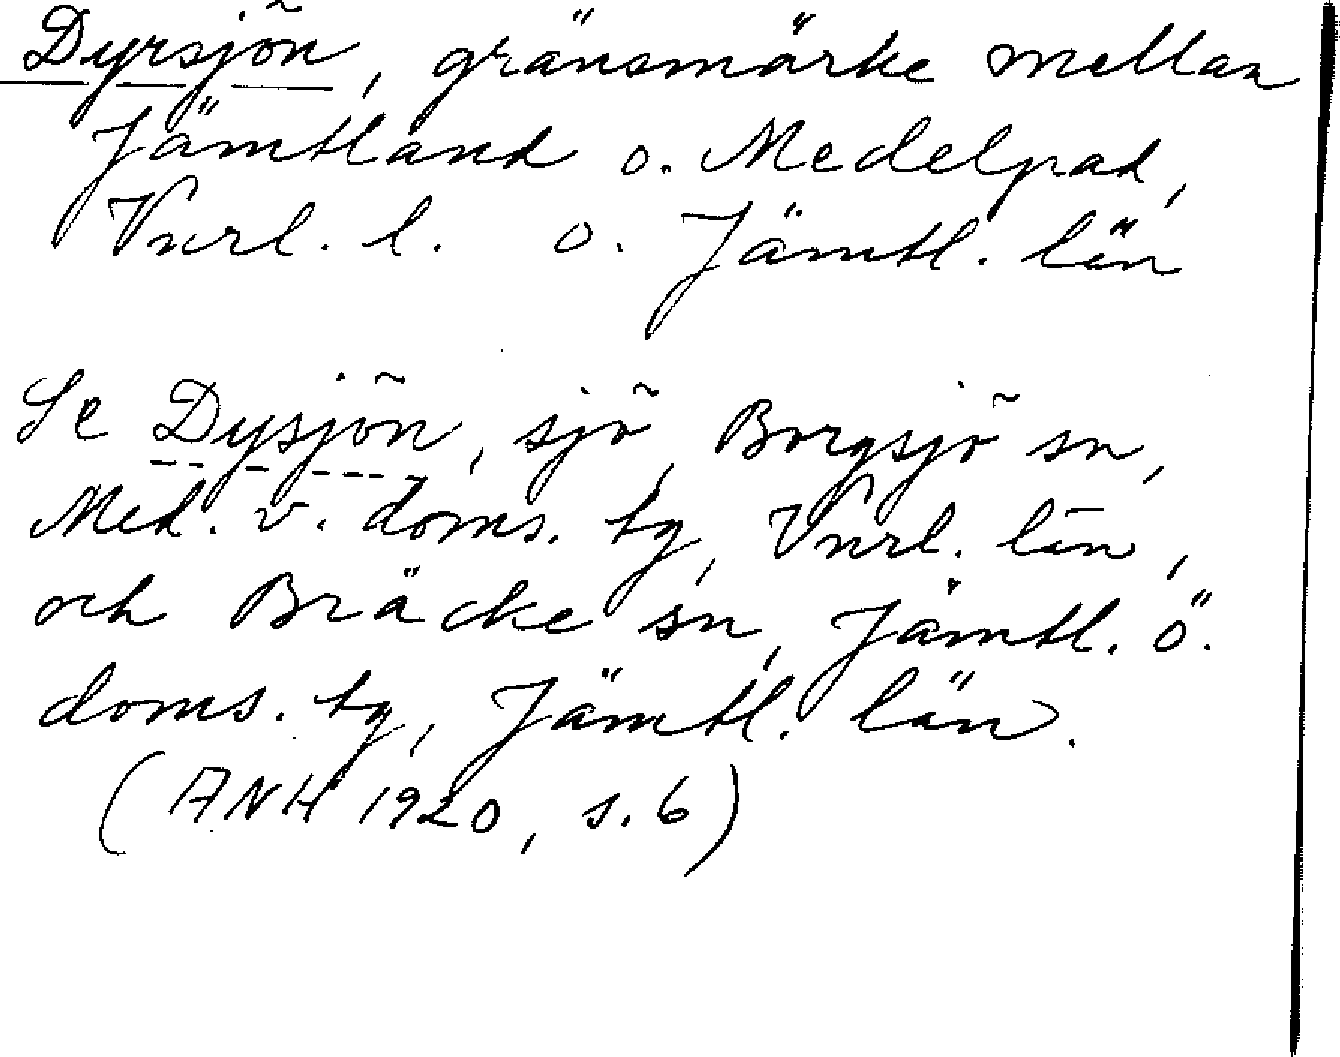 Dyrsjön, gränsmärke mellan
Jämtland o. Medelpad,
Vnrl. l. o. Jämtl. län
Se Dysjön, sjö, Borgsjö sn,
Med. v. doms. tg, Vnrl. län,
och Bräcke sn, Jämtl. ö.
doms. tg, Jämtl. län.
(ANH 1920, s. 6)